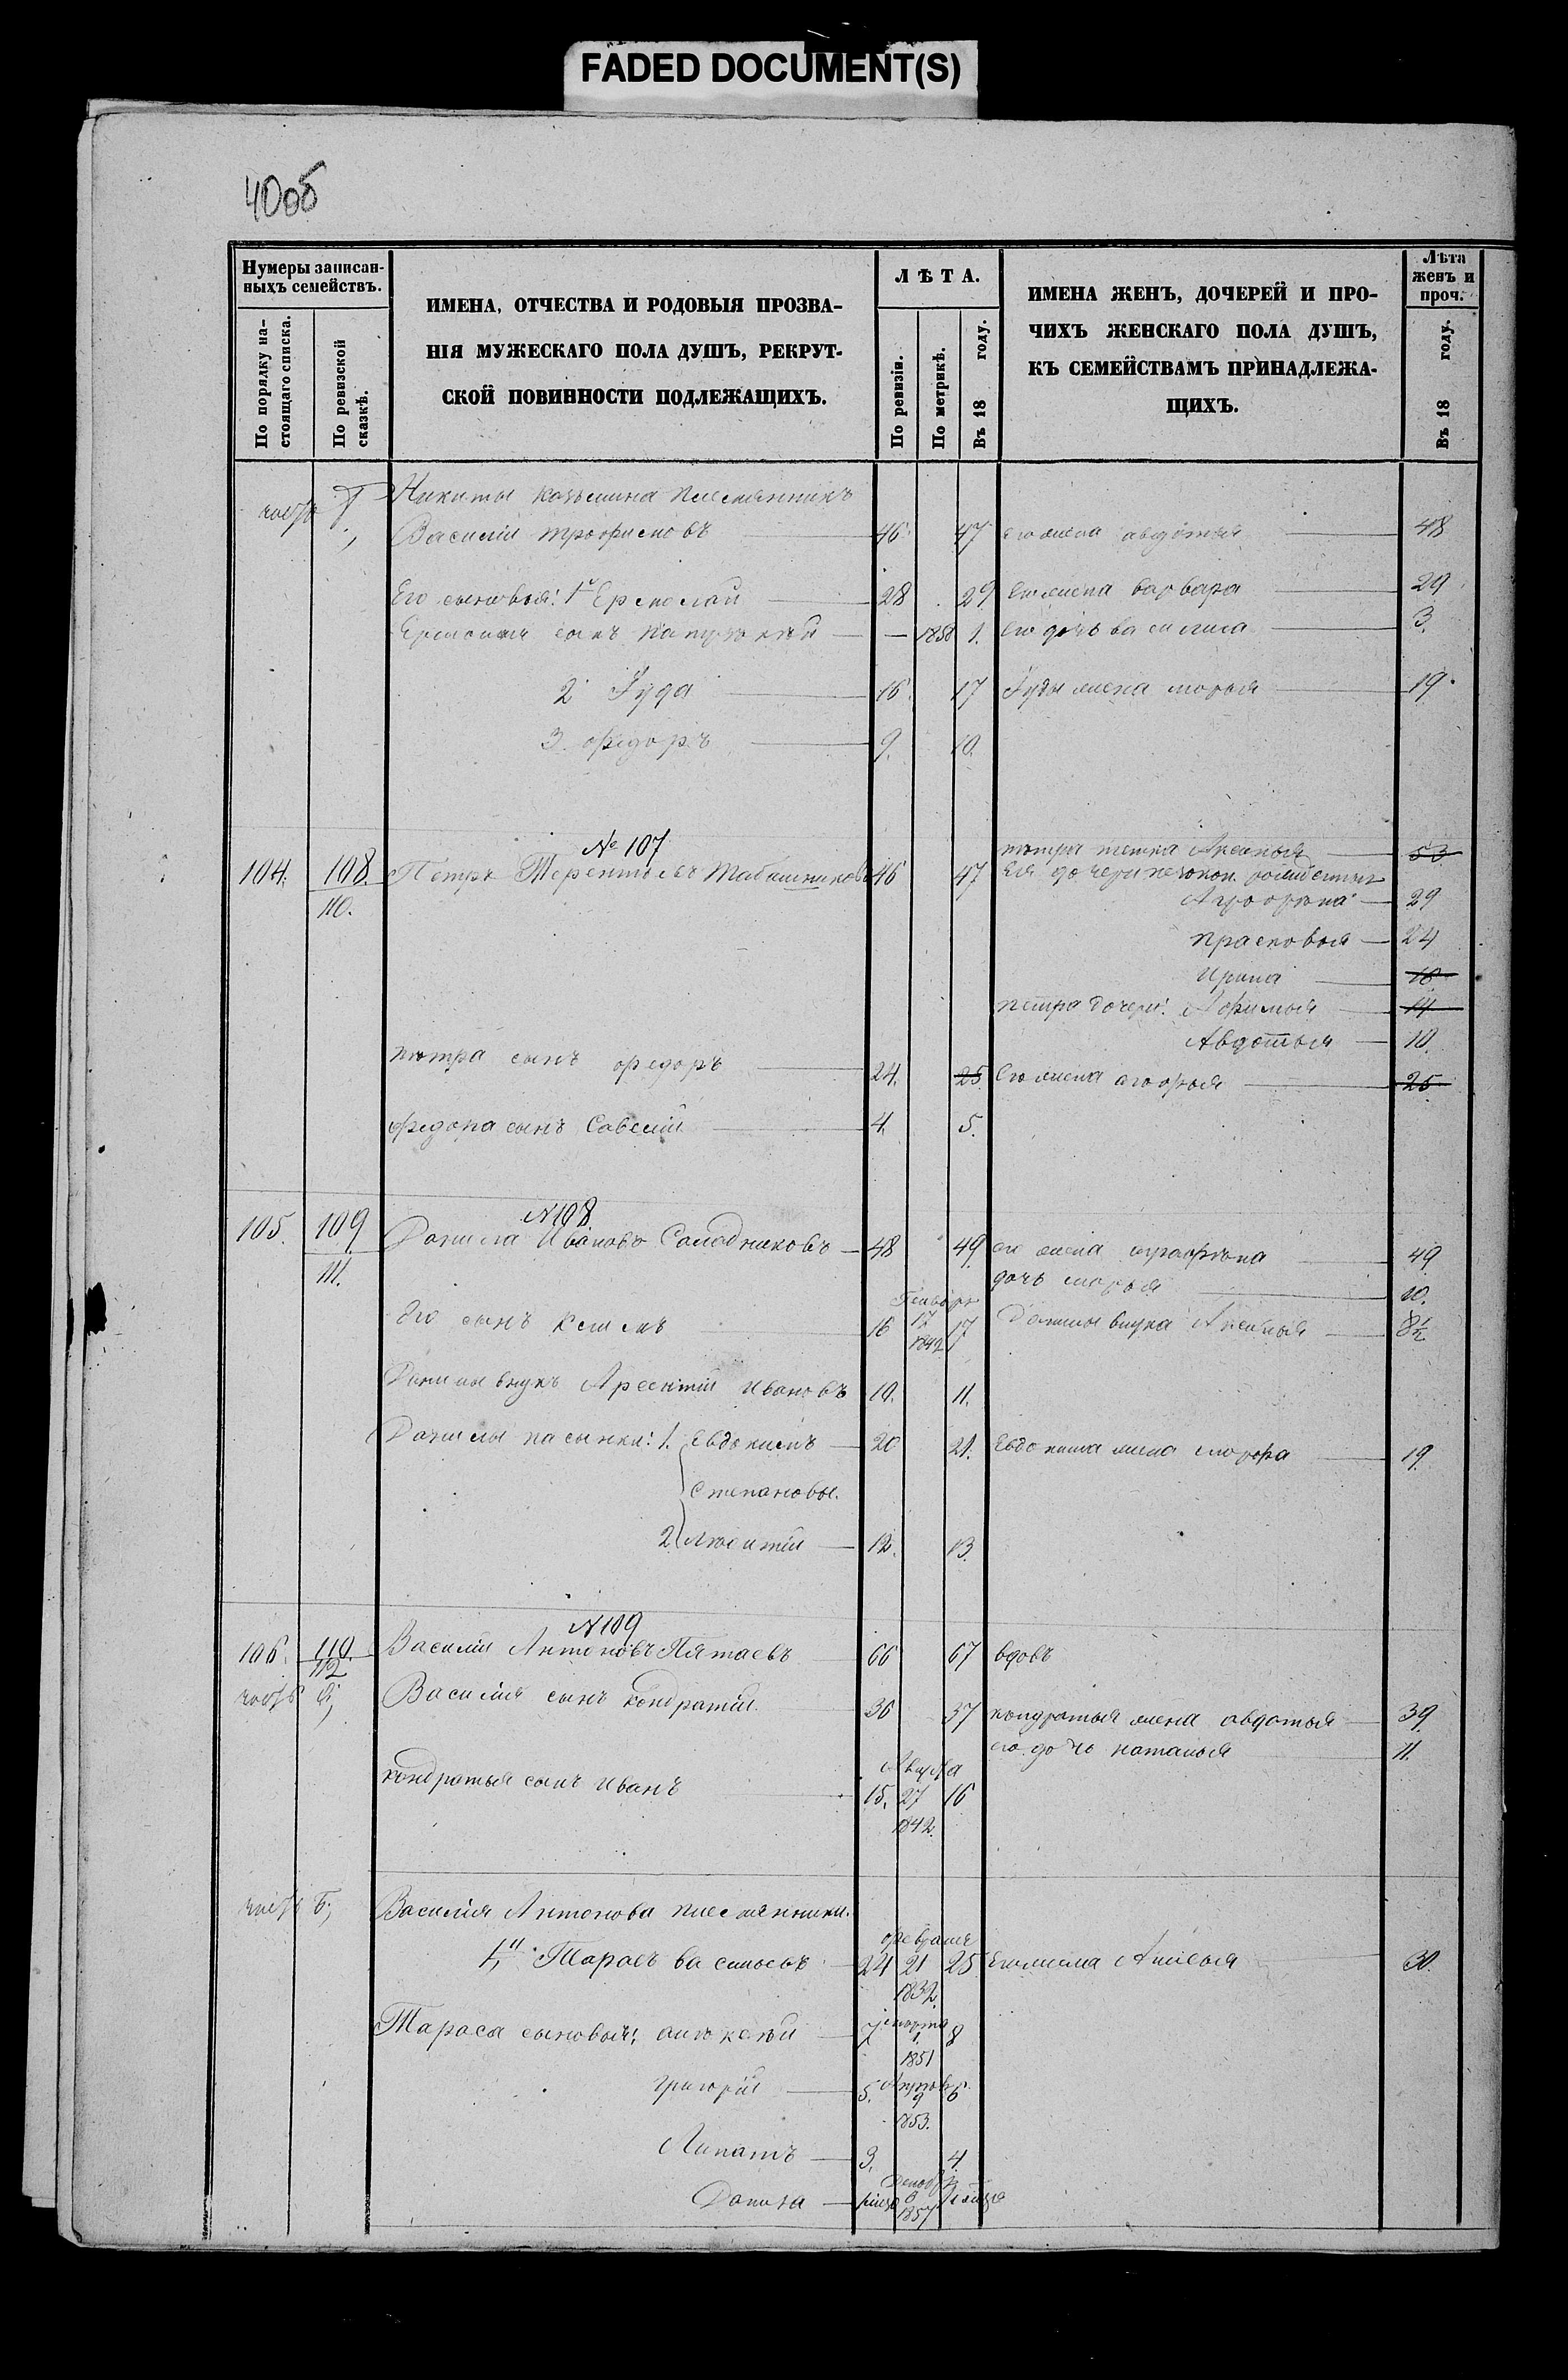 FADED DOCUMENT(S)
40об
Нумеры записан-
ныхъ семействъ.
По порядку на-
стоящаго списка.
По ревизской
сказкѣ.
ИМЕНА, ОТЧЕСТВА И РОДОВЫЯ ПРОЗВА-
НІЯ МУЖЕСКАГО ПОЛА ДУШЪ, РЕКРУТ-
СКОЙ ПОВИННОСТИ ПОДЛЕЖАЩИХЪ.
ЛѢТА.
По ревизіи.
По метрикѣ.
Въ 18 году.
ИМЕНА ЖЕНЪ, ДОЧЕРЕЙ И ПРО-
ЧИХЪ ЖЕНСКАГО ПОЛА ДУШЪ,
КЪ СЕМЕЙСТВАМЪ ПРИНАДЛЕЖА-
ЩИХЪ.
Лѣта
женъ и
проч.
Въ 18 году.
Никиты козьмина племянникъ
Василій трофимовъ 46 47 его жена авдотья 48
Его сыновья: 1й Ермолай 28 29 Его жена варвара 29
сынъ — 1858 1. его дочь василиса 3.
2 Іуда 16 17 Іуды жена марья 19
3. федоръ 9. 10.
№ 107
тетка Аксинья 53
104. 108. Петръ Терентьевъ Табашниковъ 46 47 Ея дочери
110. 29
прасковья 24
Ирина 18
петра дочери: Афимья 14
Авдотья 10
петра сынъ федоръ 24. 25 Его жена 25
федора сынъ Савелій 4. 5.
N 108
105. 109 Данила Ивановъ Солодниковъ 48 49 его жена 49
111. дочь марья 10.
Генваря
Его сынъ 16 17 17 Данилы внука Аксинья 8½
1842
Данилы внукъ Арсентій Ивановъ 10. 11.
Данилы пасынки: 1. Евдокимъ 20 21. Евдокима жена 19
Степановы.
2. 12. 13.
N 109
106. 110. Василій Антоновъ Пятаевъ 66 67 вдовъ
112
Василія сынъ Кондратій 36 37 кондратья жена авдотья 39
его дочь наталья 11.
Августа
кондратья сынъ иванъ 15. 27 16
1842.
Б; Василія Антонова племянники.
февраля
1й Тарасъ васильевъ 24 21 25 Его жена 30.
1832.
марта
Тараса сыновья: алексѣй 7 1 8
1851
григорій 5. 9 6
1853.
Липатъ 3. 4.
Декабр
Данила 6
1857